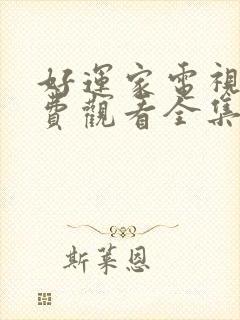 好運家電視
費觀看全集
斯萊恩